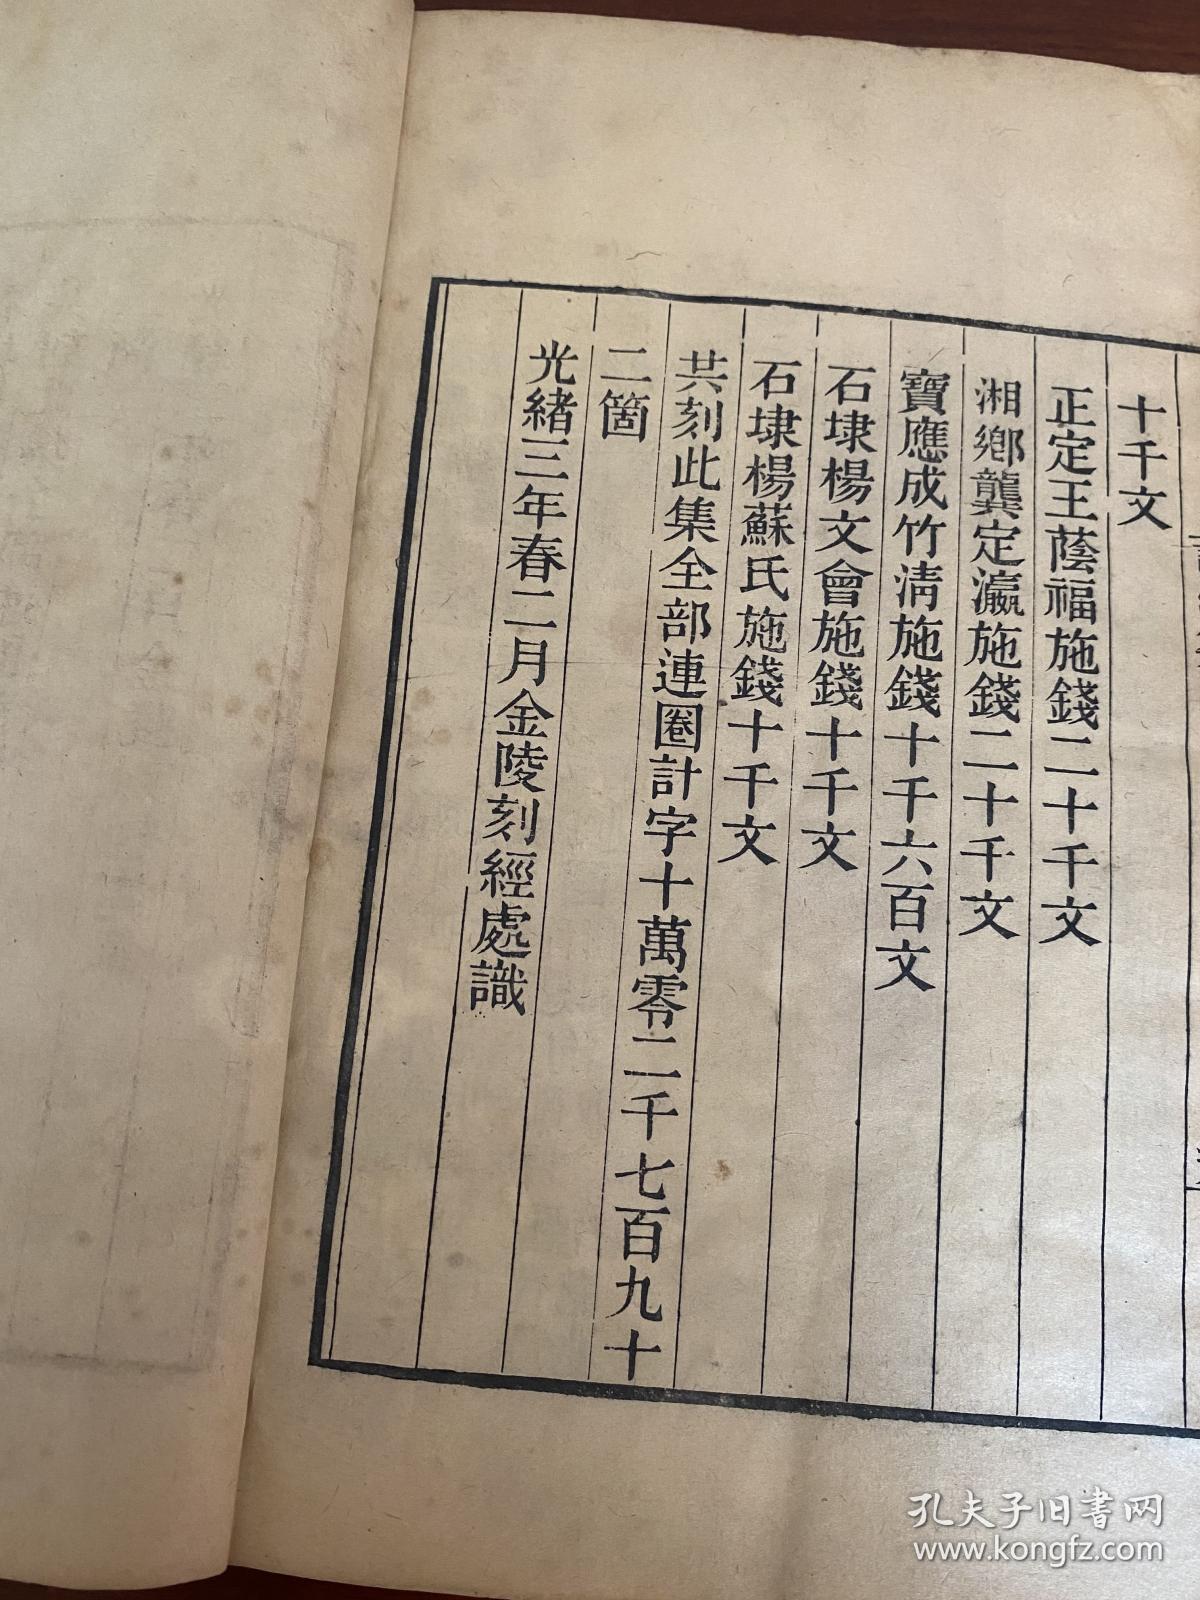 十千文
正定王蔭福施錢二十千文
湘鄉龔定瀛施錢二十千文
寶應成竹淸施錢十千六百文
石埭楊文會施錢十千文
石埭楊蘇氏施錢十千文
共刻此集全部連圈計字十萬零二千七百九十
二箇
光緒三年春二月金陵刻經處識
孔夫子旧書网
www.kongfz.com